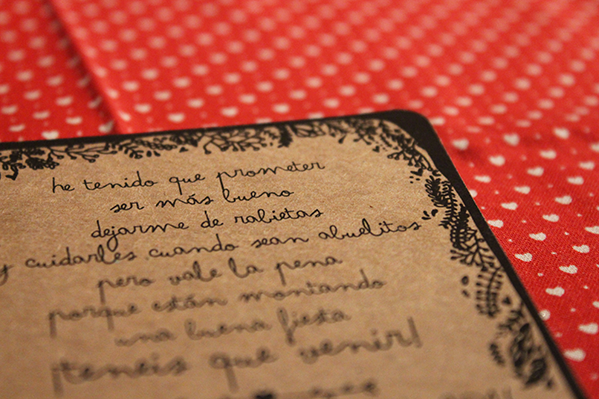 he tenido que prometer
ser más bueno
dejarme de rabietas
y cuidarles cuando sean abuelitos
pero vale la pena
porque están montando
una buena fiesta
¡tenéis que venir!